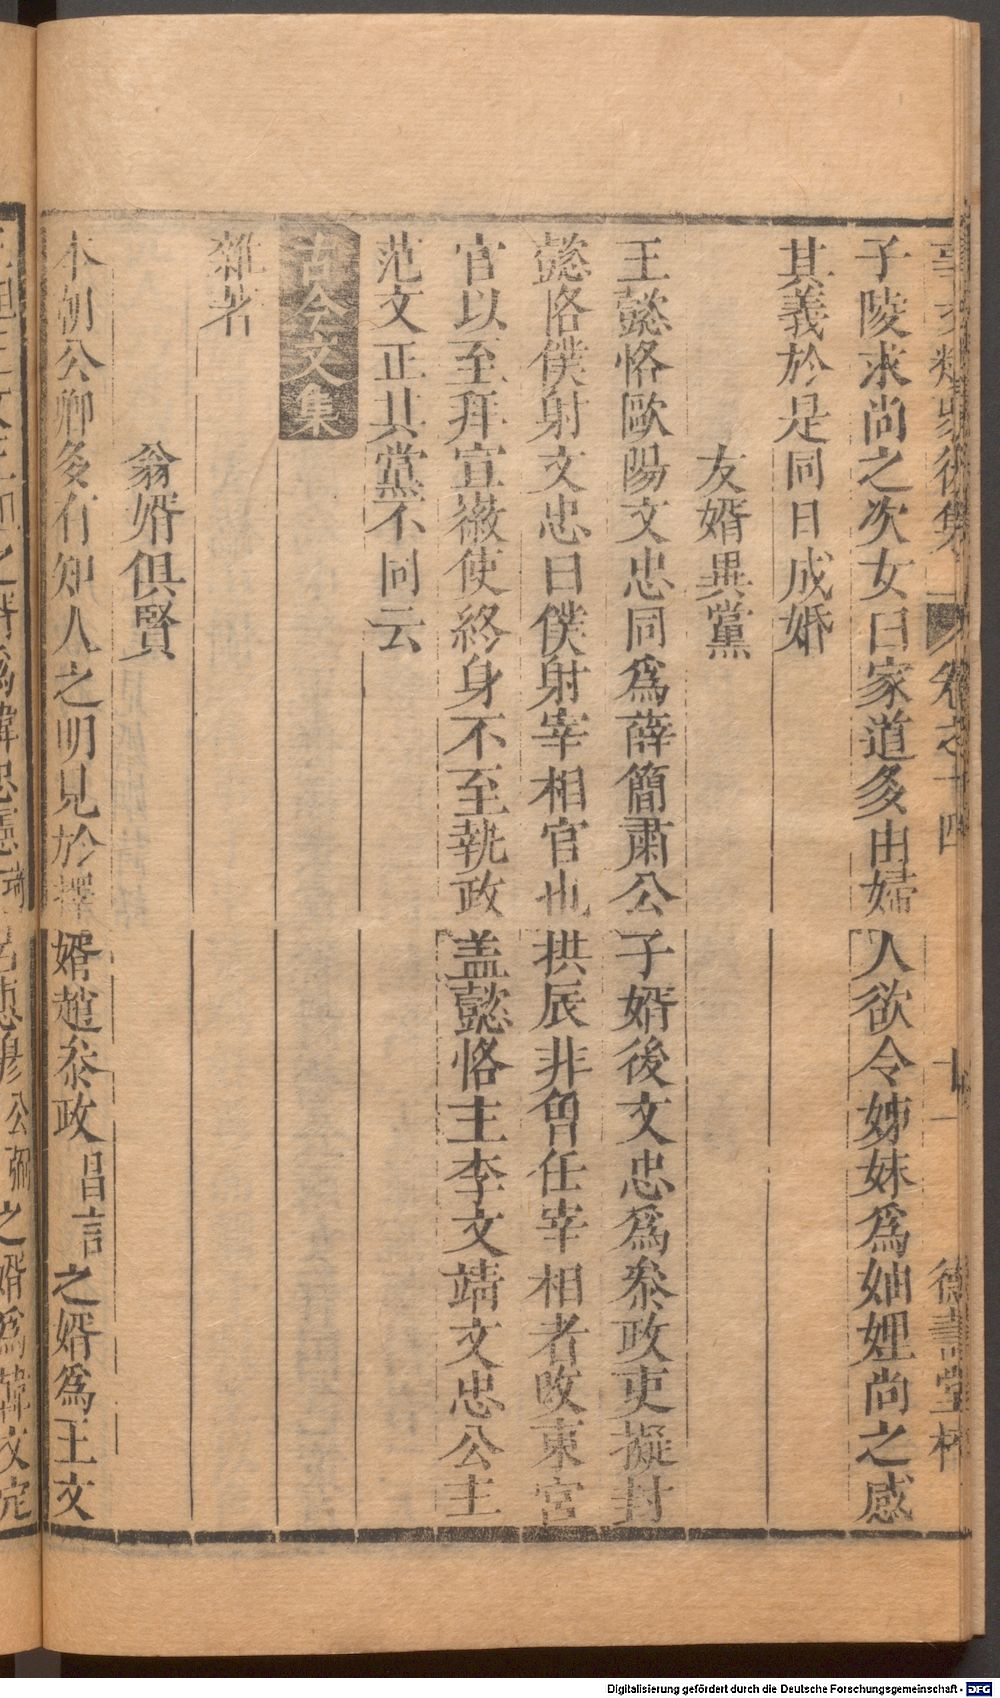 事文類聚後集 卷之十四 十一 德壽堂梓
子陵求尚之次女曰家道多由婦人欲令姊妹爲妯娌尚之感
其義於是同日成婚
友婿異黨
王懿恪歐陽文忠同爲薛簡肅公子婿後文忠爲叅政吏擬封
懿恪僕射文忠曰僕射宰相官也拱辰非曾任宰相者改東宮
官以至拜宣徽使終身不至執政盖懿恪主李文靖文忠公主
范文正其黨不同云
古今文集
雜著
翁婿俱賢
本朝公卿多有知人之明見於擇婿趙叅政昌言之婿爲王文
之婿爲韓忠憲 公弼之婿爲韓文定
Digitalisierung gefördert durch die Deutsche Forschungsgemeinschaft - DFG